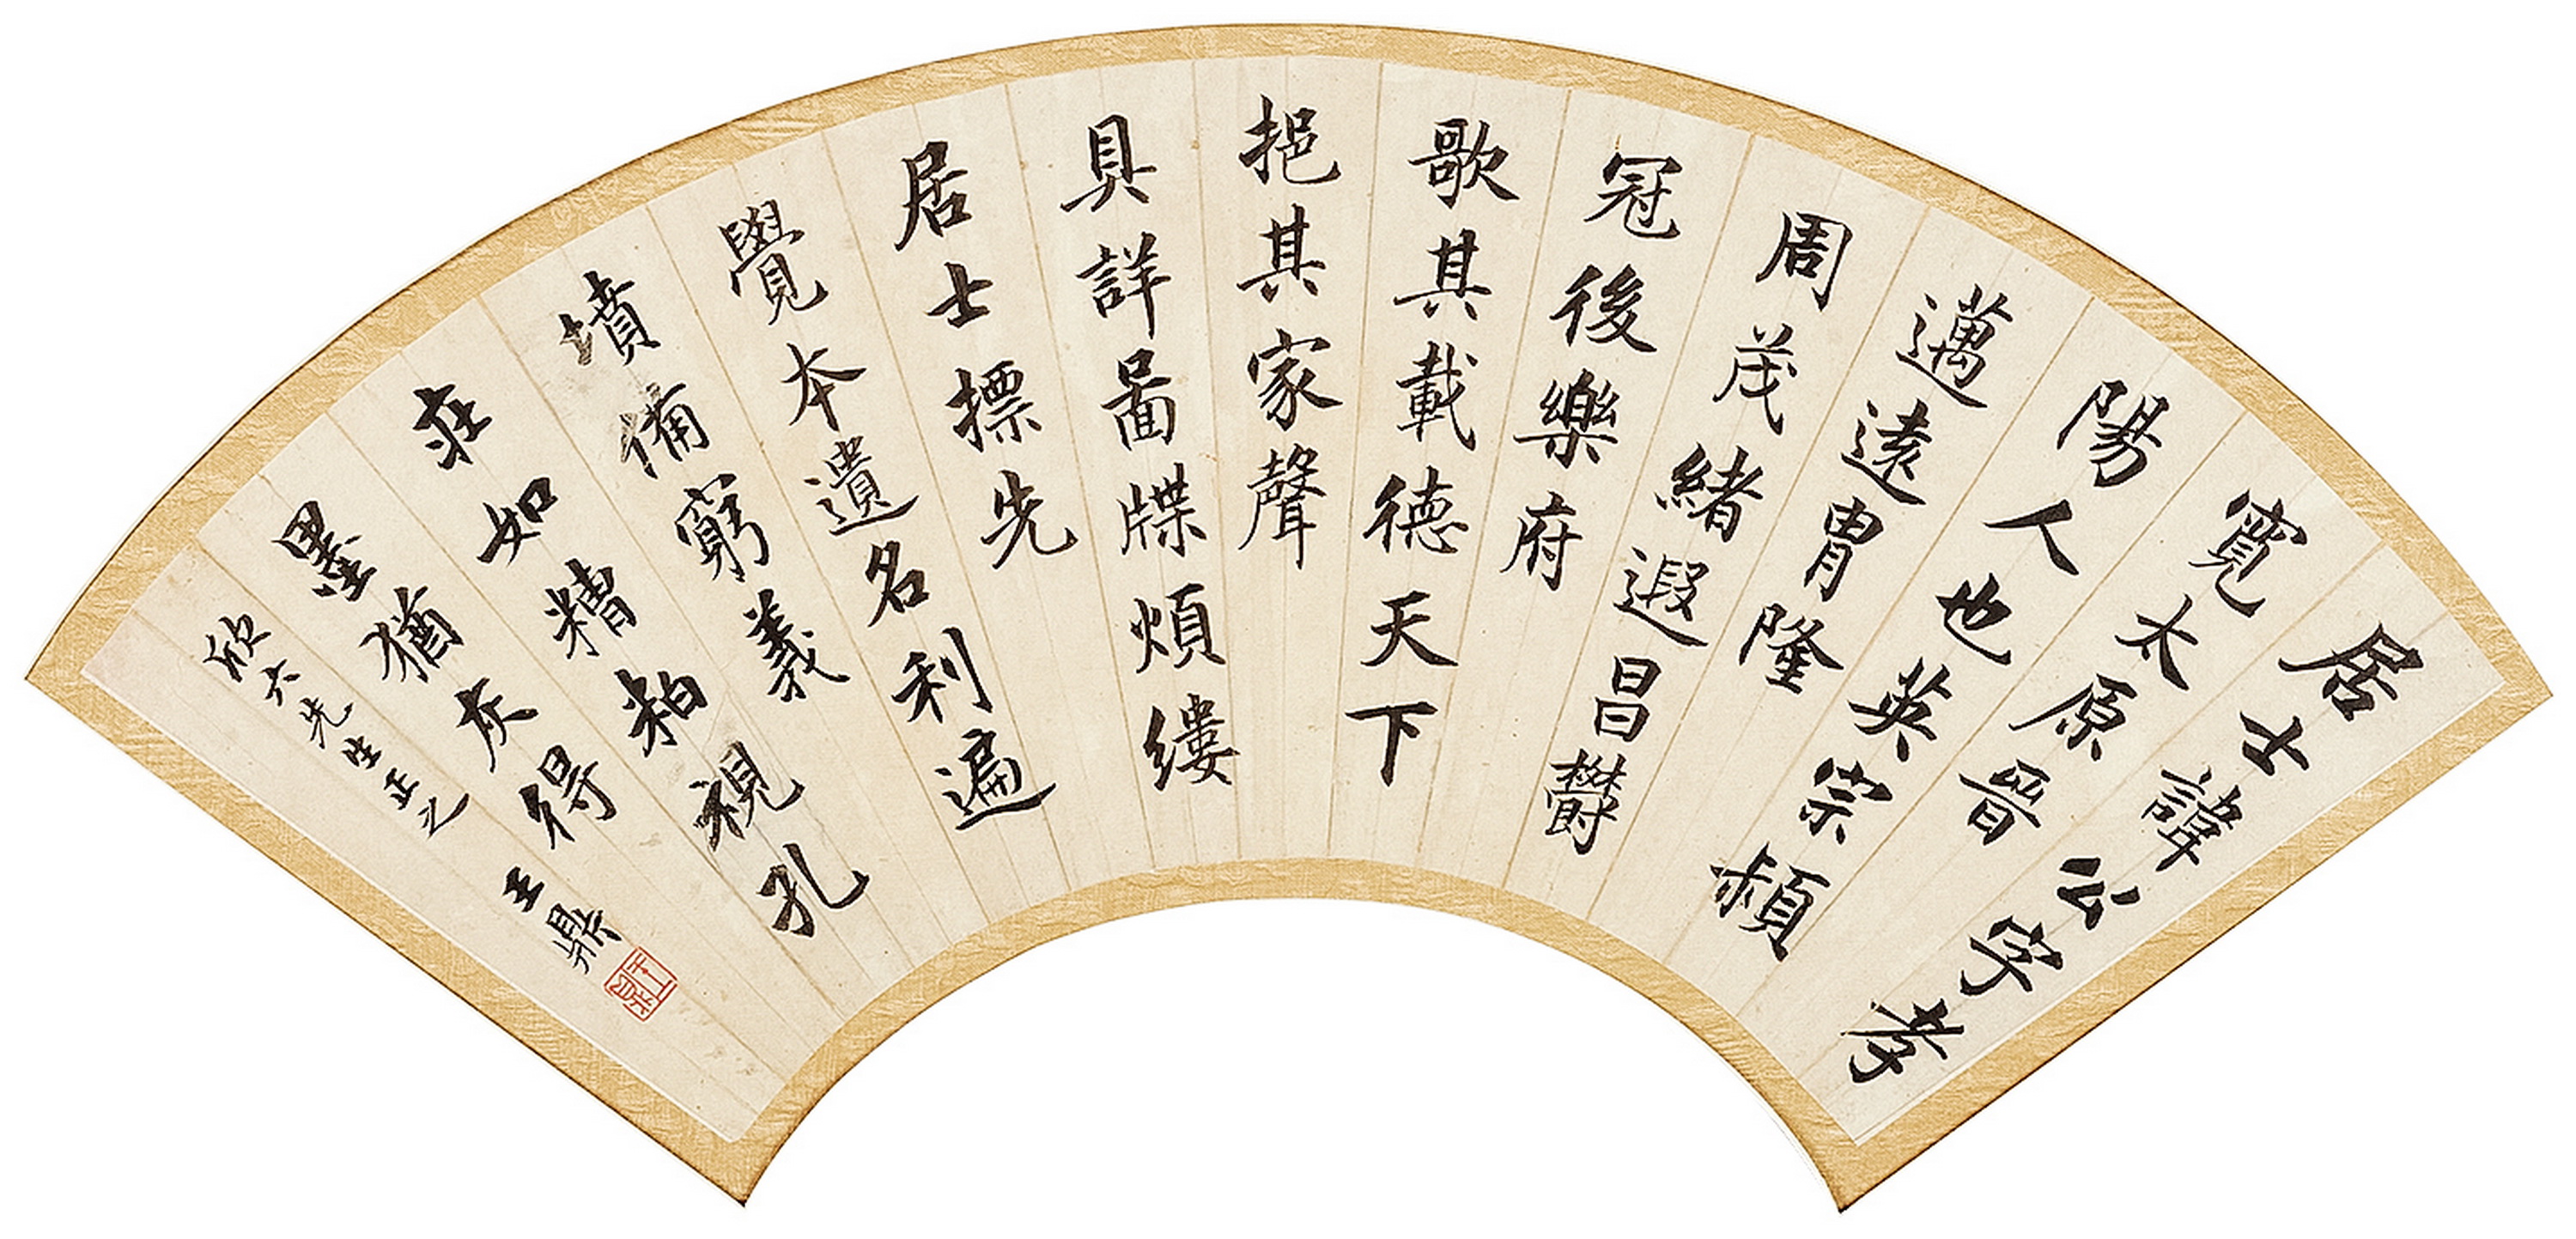 居士諱公字孝
寬太原晉
陽人也英宗穎
邁遠胄隆
周茂緒遐昌欝
冠後樂府
歌其載德天下
挹其家聲
具詳啚牒煩縷
居士標先
覺本遺名利遍
墳備窮義
莊如糟粕視孔
墨猶灰得
欣六先生正之
王鼎
王鼎